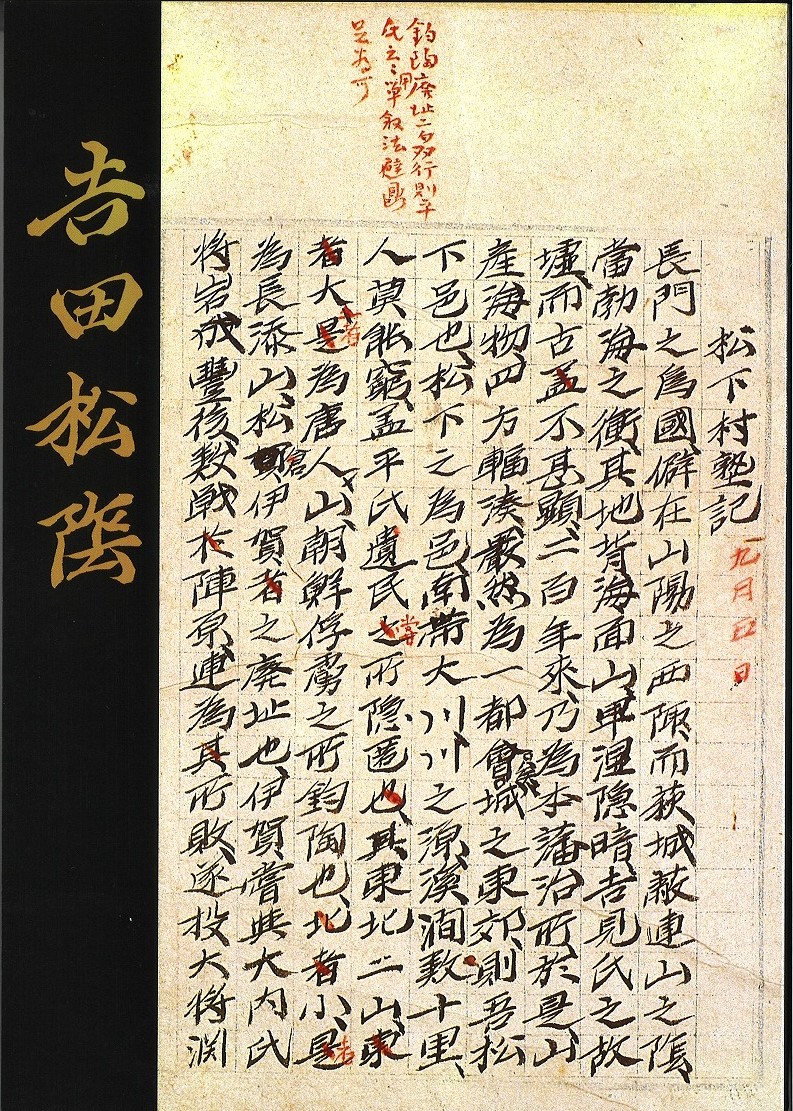 吉田松陰
鈞陶廢址二句双行則平
氏云々用單叙法避
足為可
松下村塾記 九月五日
長門之為國、僻在山陽之西陬、而萩城蔽連山之陰、
當勃海之衝、其地背海面山、卑湿隠暗、吉見氏之故
墟、而古孟不甚顯、二百年來、乃為本藩治所、於是山
產海物、四方輻湊、嚴然為一都會、城之東郊、則吾松
下邑也、松下之為邑、南帶大川、川之源、溪澗数十里、
人莫能窮、孟平氏遺民之嘗所隠匿也、其東北二山、東
者大、是者為唐人山、朝鮮俘虜之所鈞陶也、北者小、是者
為長添山、松倉伊賀者之廢址也、伊賀嘗與大内氏
将岩成豐後、数戦於陣原、連為其所敗、遂投大将渕